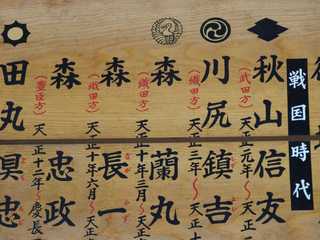 戦国時代
秋山信友
（武田方）天正元年〜天正
川尻鎮吉
（織田方）天正三年〜天正
森蘭丸
（織田方）天正十年三月〜天正
森長一
（織田方）天正十年六月〜天正
森忠政
（豊臣方）天正十二年〜慶長
田丸具忠